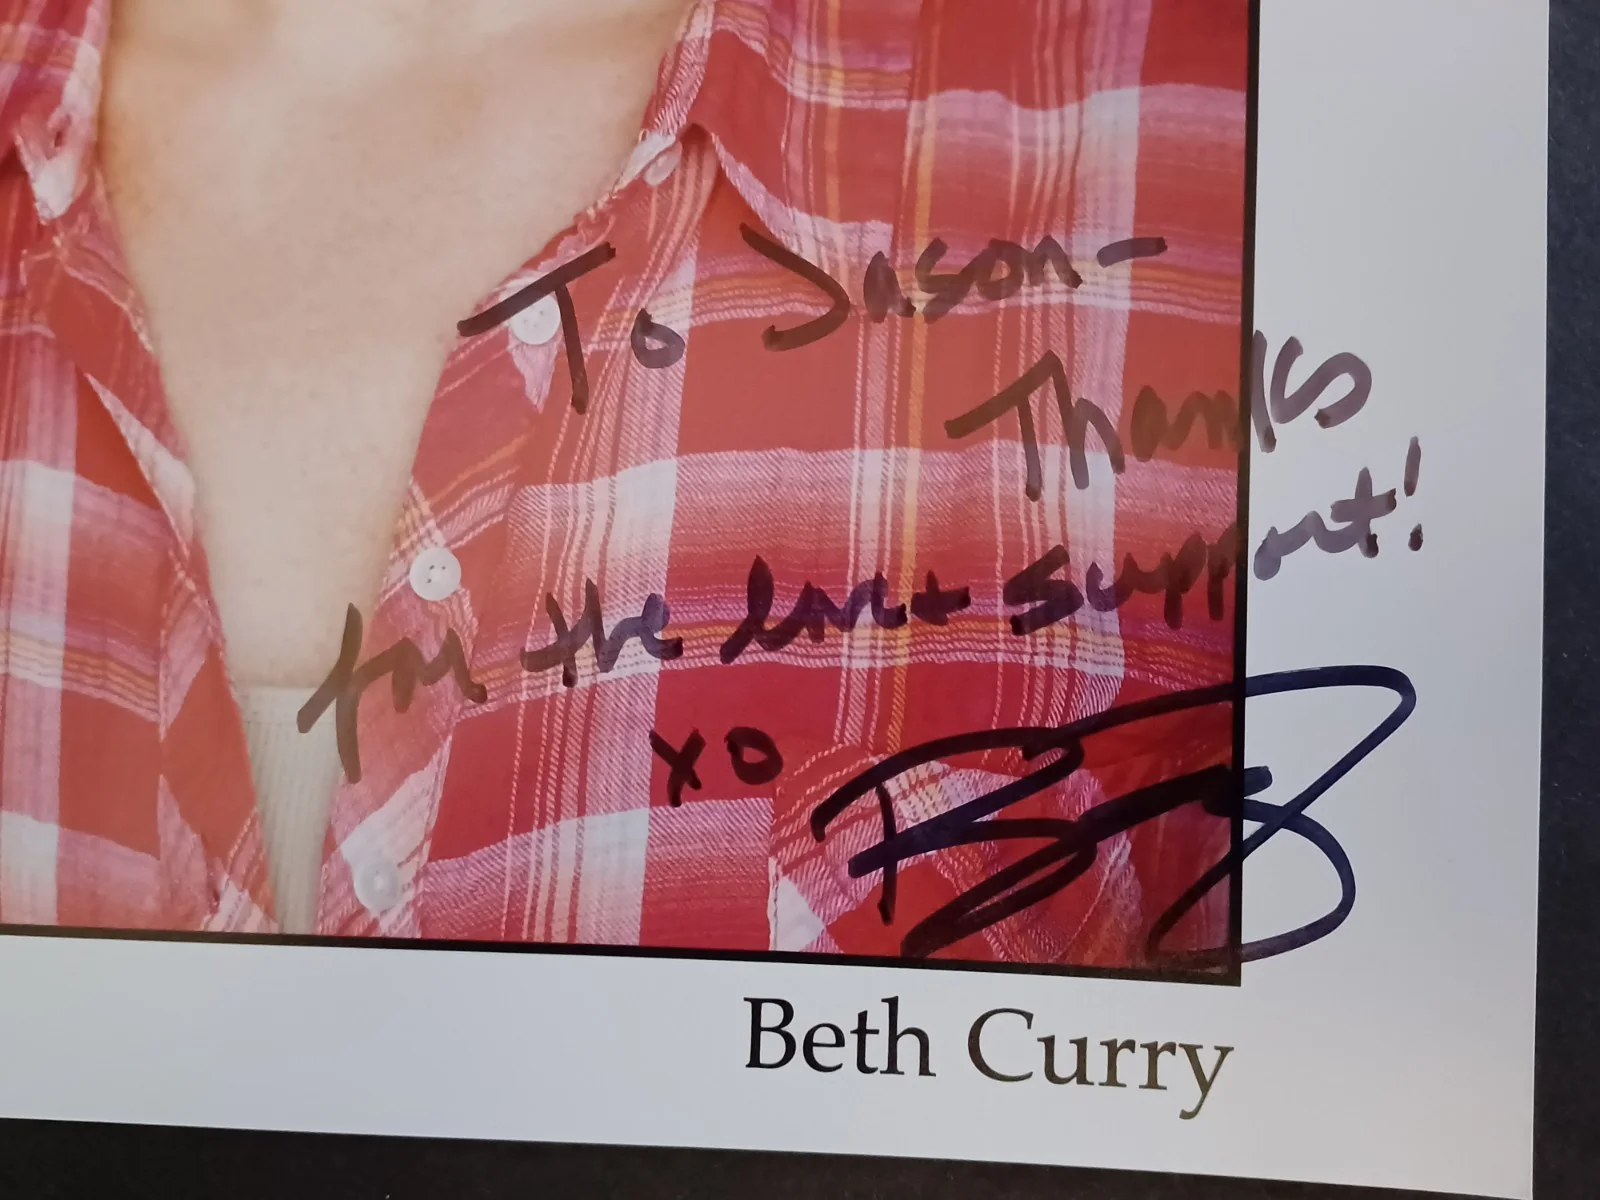 To Jason-
Thanks
for the love + support!
xo
Beth Curry